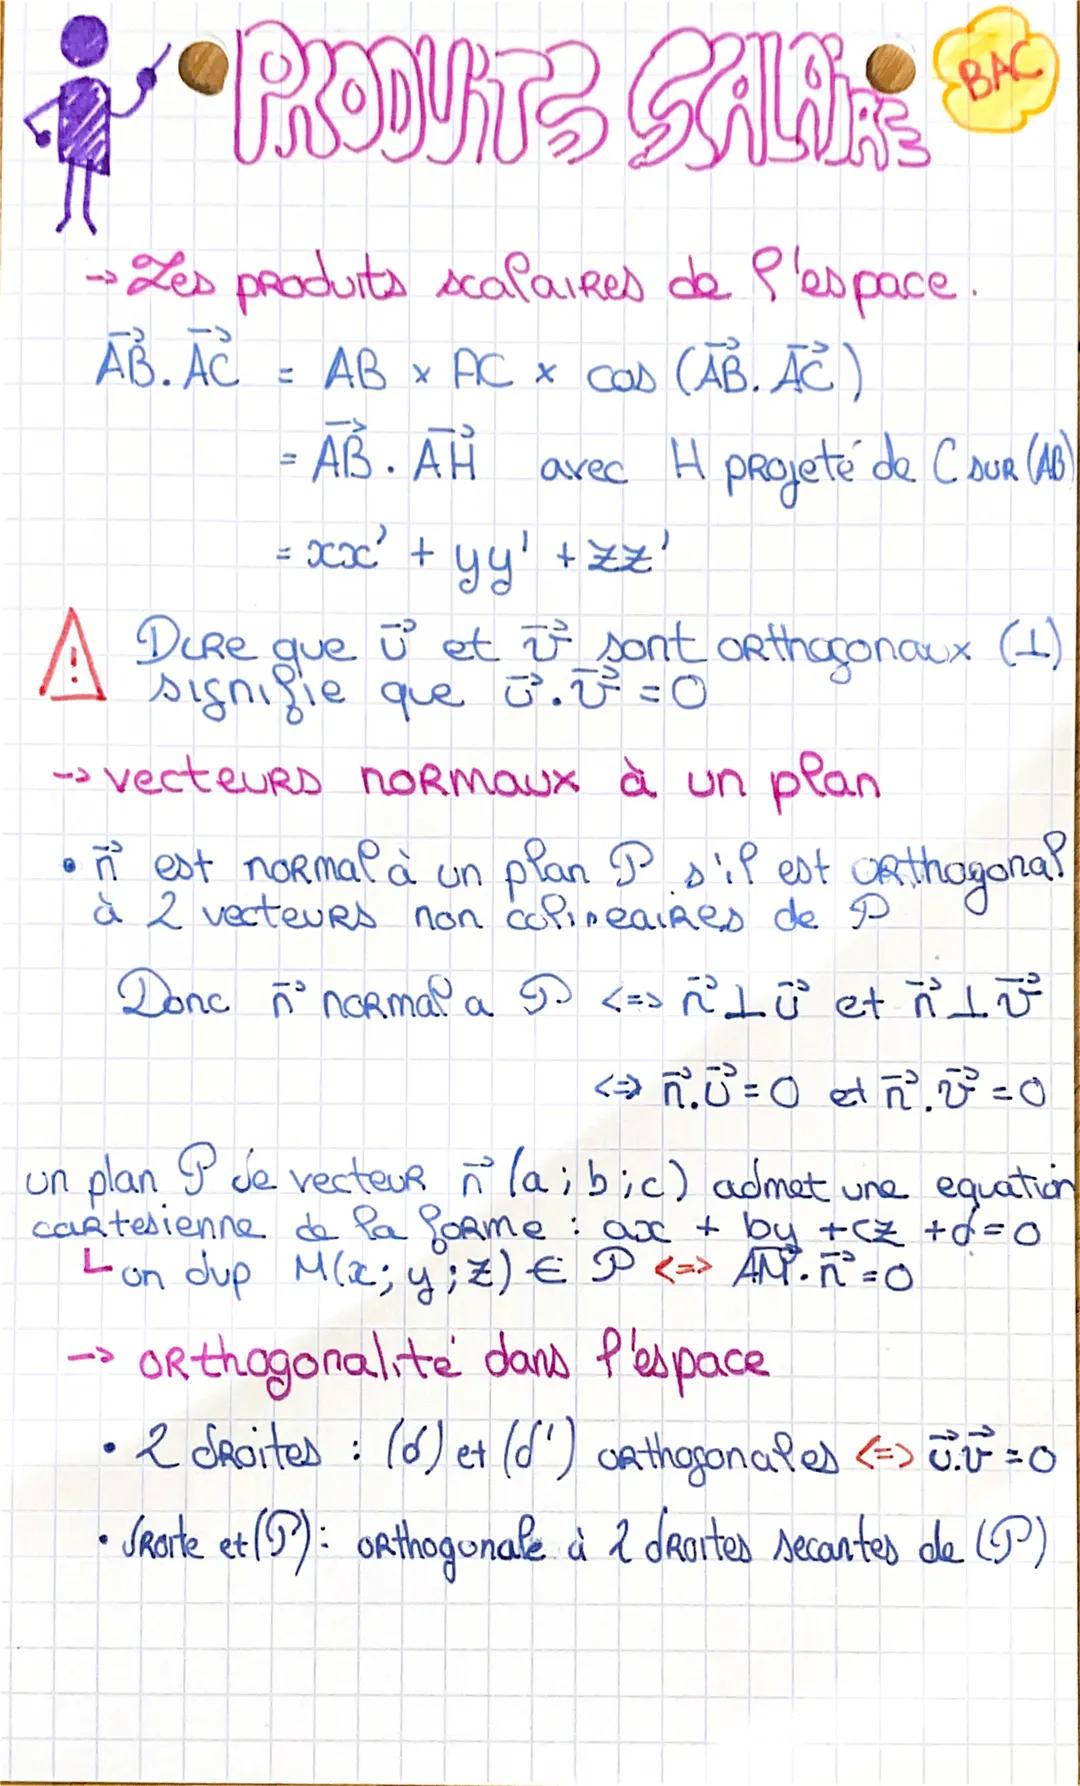 PRODUITS SCALAIRES
BAC
→ Les produits scalaires de l'espace.
AB⃗. AC⃗ = AB × AC × cos (AB⃗. AC⃗)
= AB⃗ . AH⃗ avec H projeté de C sur (AB)
= xx' + yy' + zz'
! Dire que u⃗ et v⃗ sont orthogonaux (⊥)
signifie que u⃗.v⃗ = 0
→ vecteurs normaux à un plan
• n⃗ est normal à un plan P s'il est orthogonal
à 2 vecteurs non colineaires de P
Donc n⃗ normal a P <=> n⃗⊥u⃗ et n⃗⊥v⃗
<=> n⃗.u⃗=0 et n⃗.v⃗=0
un plan P de vecteur n⃗ (a;b;c) admet une equation
cartesienne de la forme : ax + by +cz +d=0
on dup M(x;y;z) ∈ P <=> AM⃗.n⃗=0
→ orthogonalité dans l'espace
• 2 droites : (d) et (d') orthogonales <=> u⃗.v⃗=0
• droite et (P) : orthogonale à 2 droites secantes de (P)